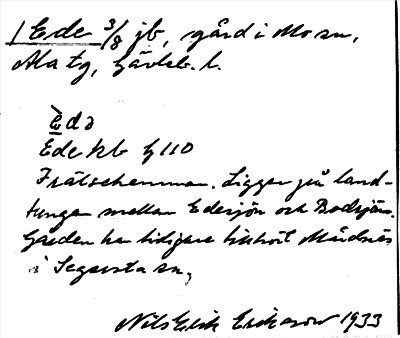 1 Ede 3/8 jb, gård i Mo sn,
Ala tg, Gävleb. l.
Ede kb G 110
Frälsehemman. Ligger på land-
tungan mellan Edesjön och Bodsjön.
Gården har tidigare tillhört Mårdnäs
i Segersta sn,
Nils Erik Eriksson 1933